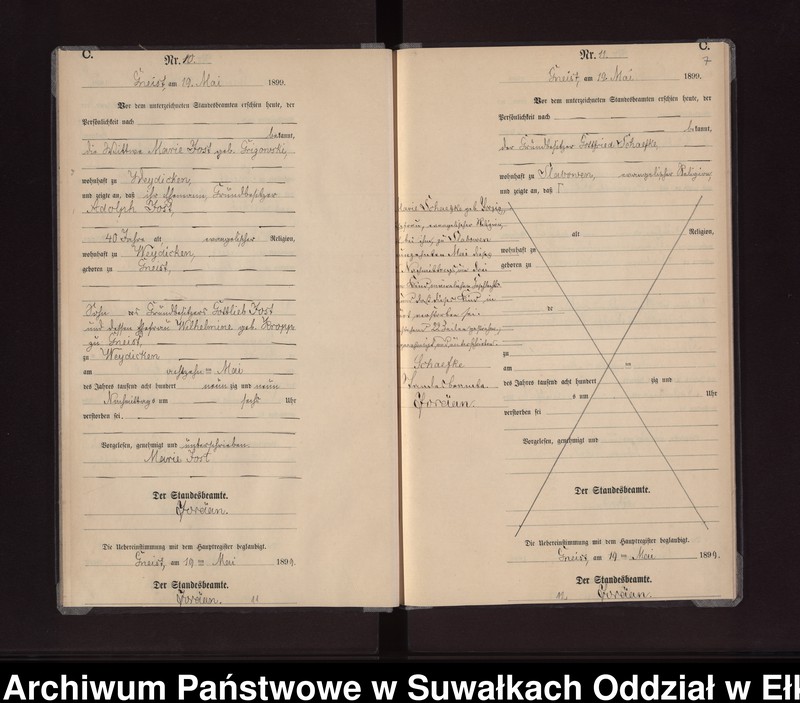 C.
Nr. 10.
Gneist, am 19. Mai 1899.
Vor dem unterzeichneten Standesbeamten erschien heute, der
Persönlichkeit nach
bekannt,
die Wittwe Marie Jost geb. Grigowski,
wohnhaft zu Weydicken,
und zeigte an, daß ihr Ehemann, Grundbesitzer
Adolph Jost,
40 Jahre alt evangelischer Religion,
wohnhaft zu Weydicken,
geboren zu Gneist,
Sohn des Grundbesitzers Gottlieb Jost
und dessen Ehefrau Wilhelmine geb. Kropp
zu Gneist,
zu Weydicken
am achtzehn ten Mai
des Jahres tausend acht hundert neun zig und neun
Nachmittags um sechs Uhr
verstorben sei.
Vorgelesen, genehmigt und unterschrieben.
Marie Jost
Der Standesbeamte.
Die Uebereinstimmung mit dem Hauptregister beglaubigt.
Gneist, am 19 ten Mai 1899.
Der Standesbeamte.
11
C.
7
Nr. 11.
Gneist, am 19. Mai 1899.
Vor dem unterzeichneten Standesbeamten erschien heute, der
Persönlichkeit nach
bekannt,
der Grundbesitzer Gottfried Schaefke,
wohnhaft zu Slabowen, evangelischer Religion,
und zeigte an, daß
Marie Schaefke geb.
evangelischer Religion,
bei ihm, zu Slabowen
Mai dieses
Nachmittags um drei
Kind männlichen Geschlechts
und daß dieses Kind in
verstorben sei.
22 Zeilen gestrichen,
genehmigt und unterschrieben.
Schaefke
Standesbeamte
alt Religion,
wohnhaft zu
geboren zu
de
zu
am ten
des Jahres tausend acht hundert zig und
s um Uhr
verstorben sei
Vorgelesen, genehmigt und
Der Standesbeamte.
Die Uebereinstimmung mit dem Hauptregister beglaubigt.
Gneist, am 19 ten Mai 1899.
Der Standesbeamte.
12
Archiwum Państwowe w Suwałkach Oddział w Ełk